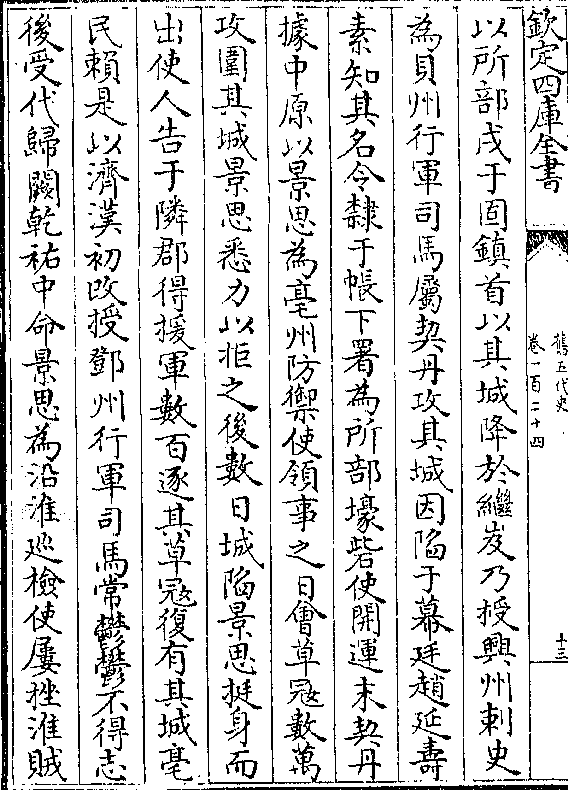 欽定四庫全書
舊五代史
卷一百二十四
十三
以所部戍于固鎮首以其城降於繼岌乃授興州刺史
為貝州行軍司馬屬契丹攻其城因陷于幕廷趙延壽
素知其名令隸于帳下署為所部壕砦使開運末契丹
據中原以景思為亳州防禦使領事之日㑹草宼數萬
攻圍其城景思悉力以拒之後數日城陷景思挺身而
出使人告于隣郡得援軍數百逐其草宼復有其城亳
民賴是以濟漢初改授鄧州行軍司馬常鬱鬱不得志
後受代歸闕乾祐中命景思為沿淮廵檢使屢挫淮賊